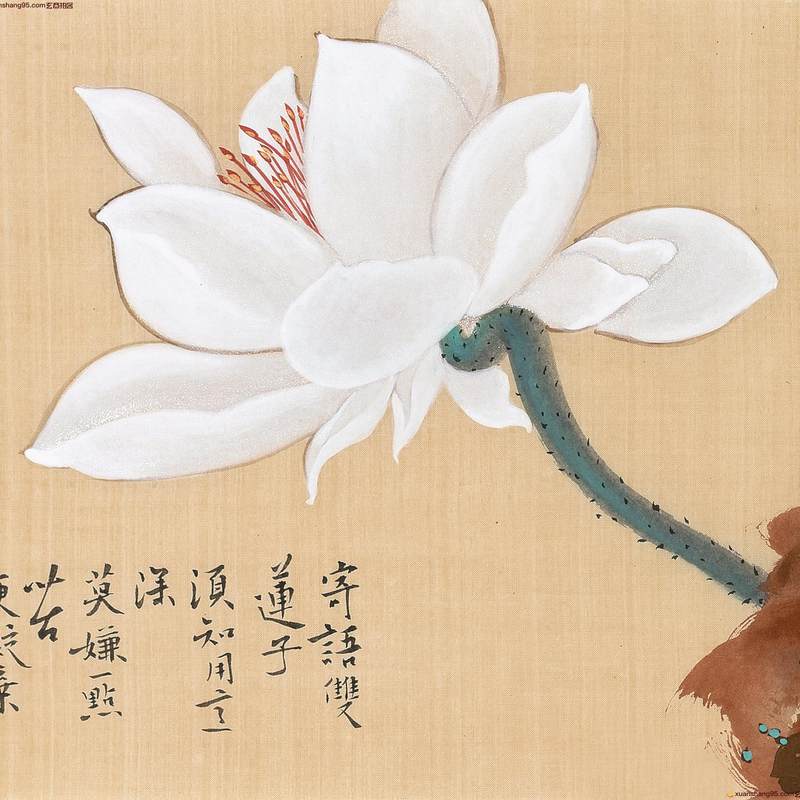 nshang95.com
寄語雙
蓮子
須知用意
深
莫嫌一點
苦
便擬棄
xuanshang95.com